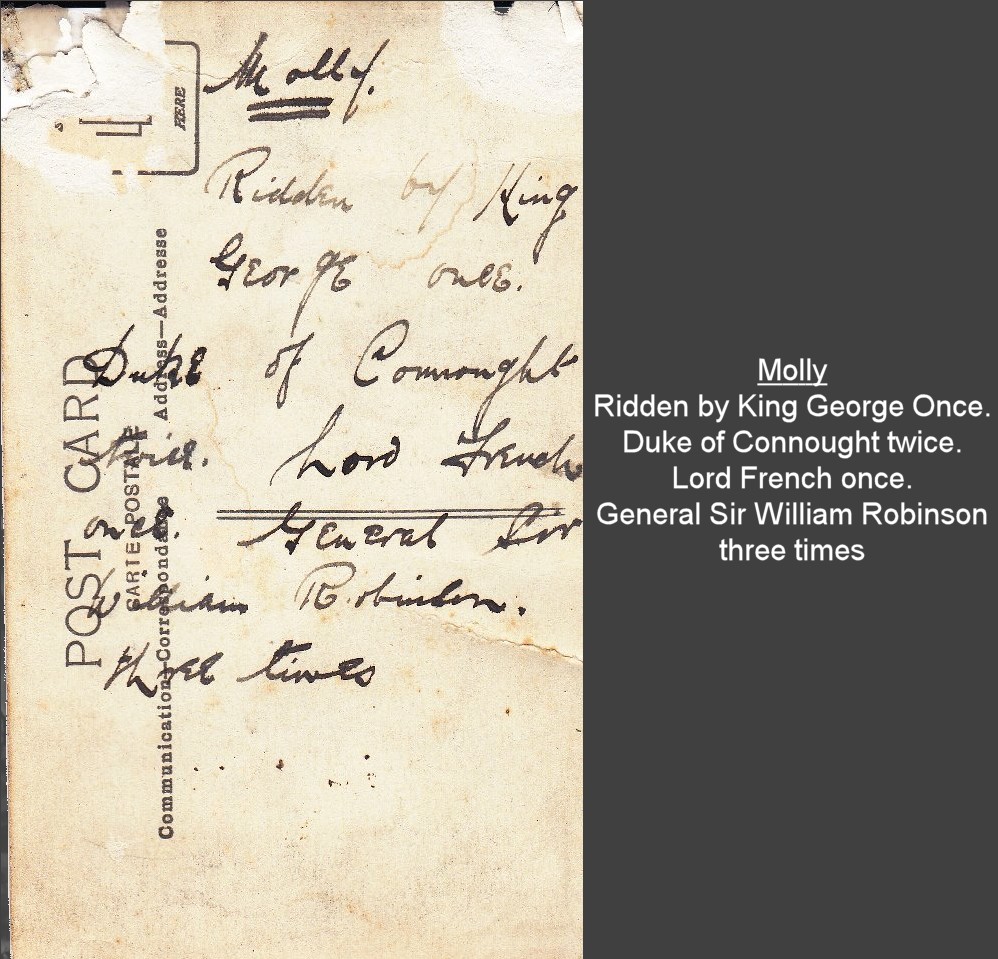 Molly.
Ridden by King
George once.
Duke of Connought
twice. Lord French
once. General Sir
William Robinson.
three times
POST CARD
CARTE POSTALE
Communication—Correspondance Address—Addresse
HERE
Molly
Ridden by King George Once.
Duke of Connought twice.
Lord French once.
General Sir William Robinson
three times